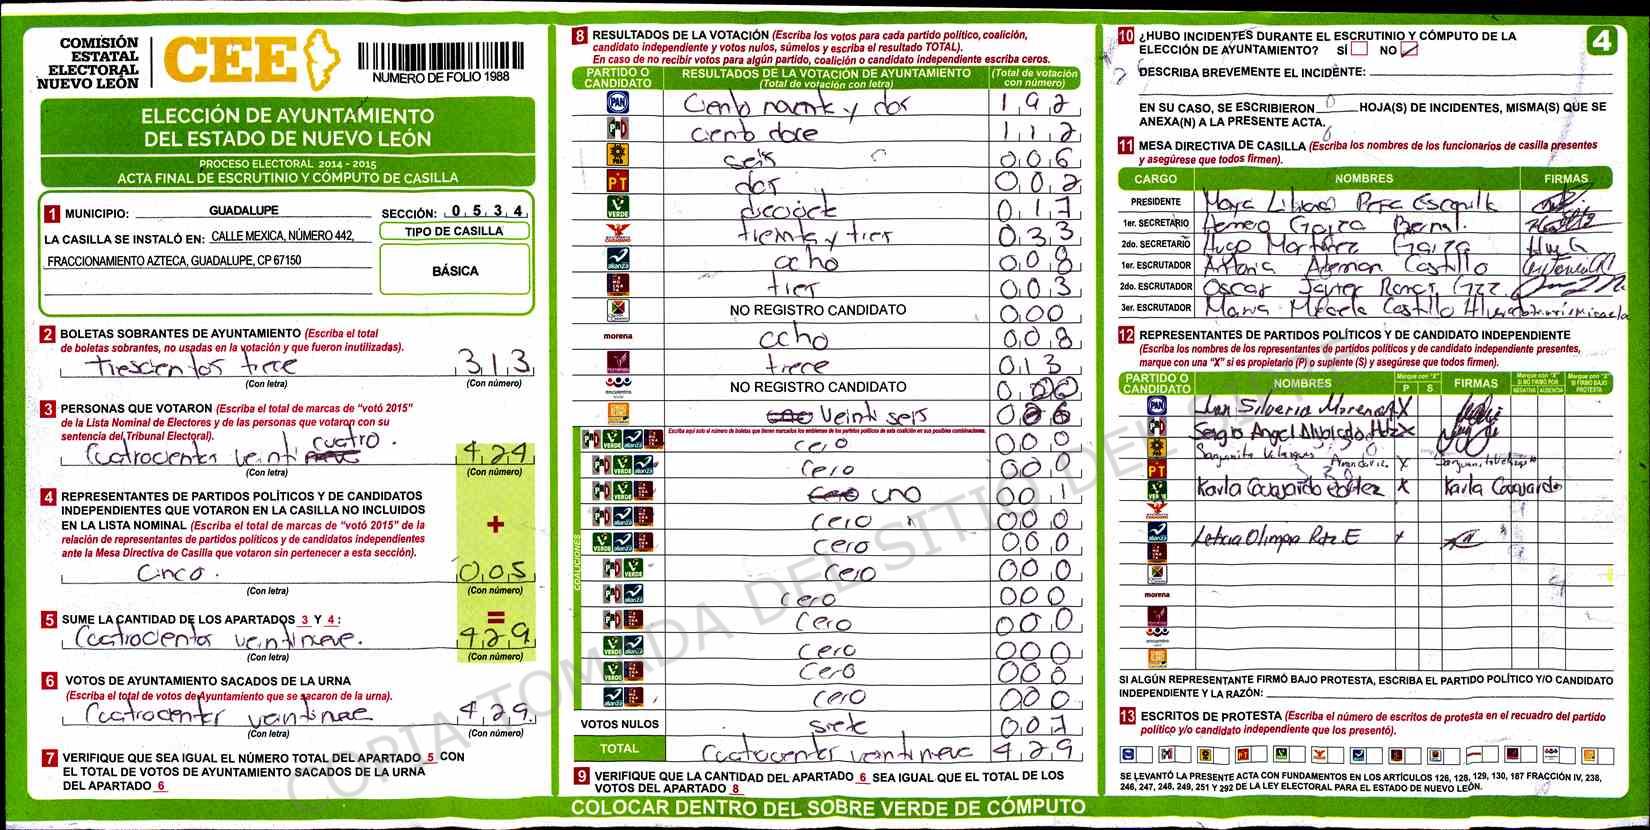 COMISIÓN
ESTATAL
ELECTORAL
NUEVO LEÓN
CEE
NUMERO DE FOLIO 1988
ELECCIÓN DE AYUNTAMIENTO
DEL ESTADO DE NUEVO LEÓN
PROCESO ELECTORAL 2014 - 2015
ACTA FINAL DE ESCRUTINIO Y CÓMPUTO DE CASILLA
1 MUNICIPIO: GUADALUPE SECCIÓN: 0 5 3 4
LA CASILLA SE INSTALÓ EN: CALLE MEXICA, NÚMERO 442,
FRACCIONAMIENTO AZTECA, GUADALUPE, CP 67150
TIPO DE CASILLA
BÁSICA
2 BOLETAS SOBRANTES DE AYUNTAMIENTO (Escriba el total
de boletas sobrantes, no usadas en la votación y que fueron inutilizadas).
trescientos trece 313
(Con letra) (Con número)
3 PERSONAS QUE VOTARON (Escriba el total de marcas de “votó 2015”
de la Lista Nominal de Electores y de las personas que votaron con su
sentencia del Tribunal Electoral).
cuatro.
Cuatrocientos veintinueve 424
(Con letra) (Con número)
4 REPRESENTANTES DE PARTIDOS POLÍTICOS Y DE CANDIDATOS
INDEPENDIENTES QUE VOTARON EN LA CASILLA NO INCLUIDOS
EN LA LISTA NOMINAL (Escriba el total de marcas de “votó 2015” de la
relación de representantes de partidos políticos y de candidatos independientes
ante la Mesa Directiva de Casilla que votaron sin pertenecer a esta sección).
+
Cinco. 005
(Con letra) (Con número)
=
5 SUME LA CANTIDAD DE LOS APARTADOS 3 Y 4:
Cuatrocientos veintinueve. 429
(Con letra) (Con número)
6 VOTOS DE AYUNTAMIENTO SACADOS DE LA URNA
(Escriba el total de votos de Ayuntamiento que se sacaron de la urna).
Cuatrocientos veintinueve 429
(Con letra) (Con número)
7 VERIFIQUE QUE SEA IGUAL EL NÚMERO TOTAL DEL APARTADO 5 CON
EL TOTAL DE VOTOS DE AYUNTAMIENTO SACADOS DE LA URNA
DEL APARTADO 6
8 RESULTADOS DE LA VOTACIÓN (Escriba los votos para cada partido político, coalición,
candidato independiente y votos nulos, súmelos y escriba el resultado TOTAL).
En caso de no recibir votos para algún partido, coalición o candidato independiente escriba ceros.
PARTIDO O CANDIDATO RESULTADOS DE LA VOTACIÓN DE AYUNTAMIENTO (Total de votación con letra) (Total de votación con número)
PAN Ciento noventa y dos 192
PRI ciento doce 112
PRD seis 006
PT dos 002
VERDE diecisiete 017
treinta y tres 033
alianza ocho 008
tres 003
NO REGISTRO CANDIDATO 000
morena ocho 008
trece 013
NO REGISTRO CANDIDATO 000
veintiseis 026
Escriba aquí solo el número de boletas que tienen marcados los emblemas de los partidos políticos de esta coalición en sus posibles combinaciones.
COALICIONES
cero 000
cero 000
uno 001
cero 000
cero 000
cero 000
cero 000
cero 000
cero 000
cero 000
cero 000
VOTOS NULOS siete 007
TOTAL Cuatrocientos veintinueve 429
9 VERIFIQUE QUE LA CANTIDAD DEL APARTADO 6 SEA IGUAL QUE EL TOTAL DE LOS
VOTOS DEL APARTADO 8
COLOCAR DENTRO DEL SOBRE VERDE DE CÓMPUTO
10 ¿HUBO INCIDENTES DURANTE EL ESCRUTINIO Y CÓMPUTO DE LA
ELECCIÓN DE AYUNTAMIENTO? SÍ NO
4
DESCRIBA BREVEMENTE EL INCIDENTE:
EN SU CASO, SE ESCRIBIERON 0 HOJA(S) DE INCIDENTES, MISMA(S) QUE SE
ANEXA(N) A LA PRESENTE ACTA.
11 MESA DIRECTIVA DE CASILLA (Escriba los nombres de los funcionarios de casilla presentes
y asegúrese que todos firmen).
CARGO NOMBRES FIRMAS
PRESIDENTE Liliana
1er. SECRETARIO Homero Garza Bernal.
2do. SECRETARIO Hugo Martínez Garza Hugo
1er. ESCRUTADOR Antonia Aleman Castillo
2do. ESCRUTADOR Oscar Javier
3er. ESCRUTADOR Maria Micaela Castillo
12 REPRESENTANTES DE PARTIDOS POLÍTICOS Y DE CANDIDATO INDEPENDIENTE
(Escriba los nombres de los representantes de partidos políticos y de candidato independiente presentes,
marque con una “X” si es propietario (P) o suplente (S) y asegúrese que todos firmen).
PARTIDO O CANDIDATO NOMBRES Marque con “X” P S FIRMAS Marque con “X” SI NO FIRMÓ POR NEGATIVA AUSENCIA Marque con “X” SI FIRMÓ BAJO PROTESTA
PAN Juan Silverio Moreno X
PRI Sergio Angel Alvarado Hdz X
Sanjuanita Velazquez X
Karla Coquardo X Karla Coquardo
Leticia Olimpia Rdz. E X
morena
SI ALGÚN REPRESENTANTE FIRMÓ BAJO PROTESTA, ESCRIBA EL PARTIDO POLÍTICO Y/O CANDIDATO
INDEPENDIENTE Y LA RAZÓN:
13 ESCRITOS DE PROTESTA (Escriba el número de escritos de protesta en el recuadro del partido
político y/o candidato independiente que los presentó).
SE LEVANTÓ LA PRESENTE ACTA CON FUNDAMENTOS EN LOS ARTÍCULOS 126, 128, 129, 130, 187 FRACCIÓN IV, 238,
246, 247, 248, 249, 251 Y 292 DE LA LEY ELECTORAL PARA EL ESTADO DE NUEVO LEÓN.
COPIA TOMADA DEL SITIO DEL SIPRE